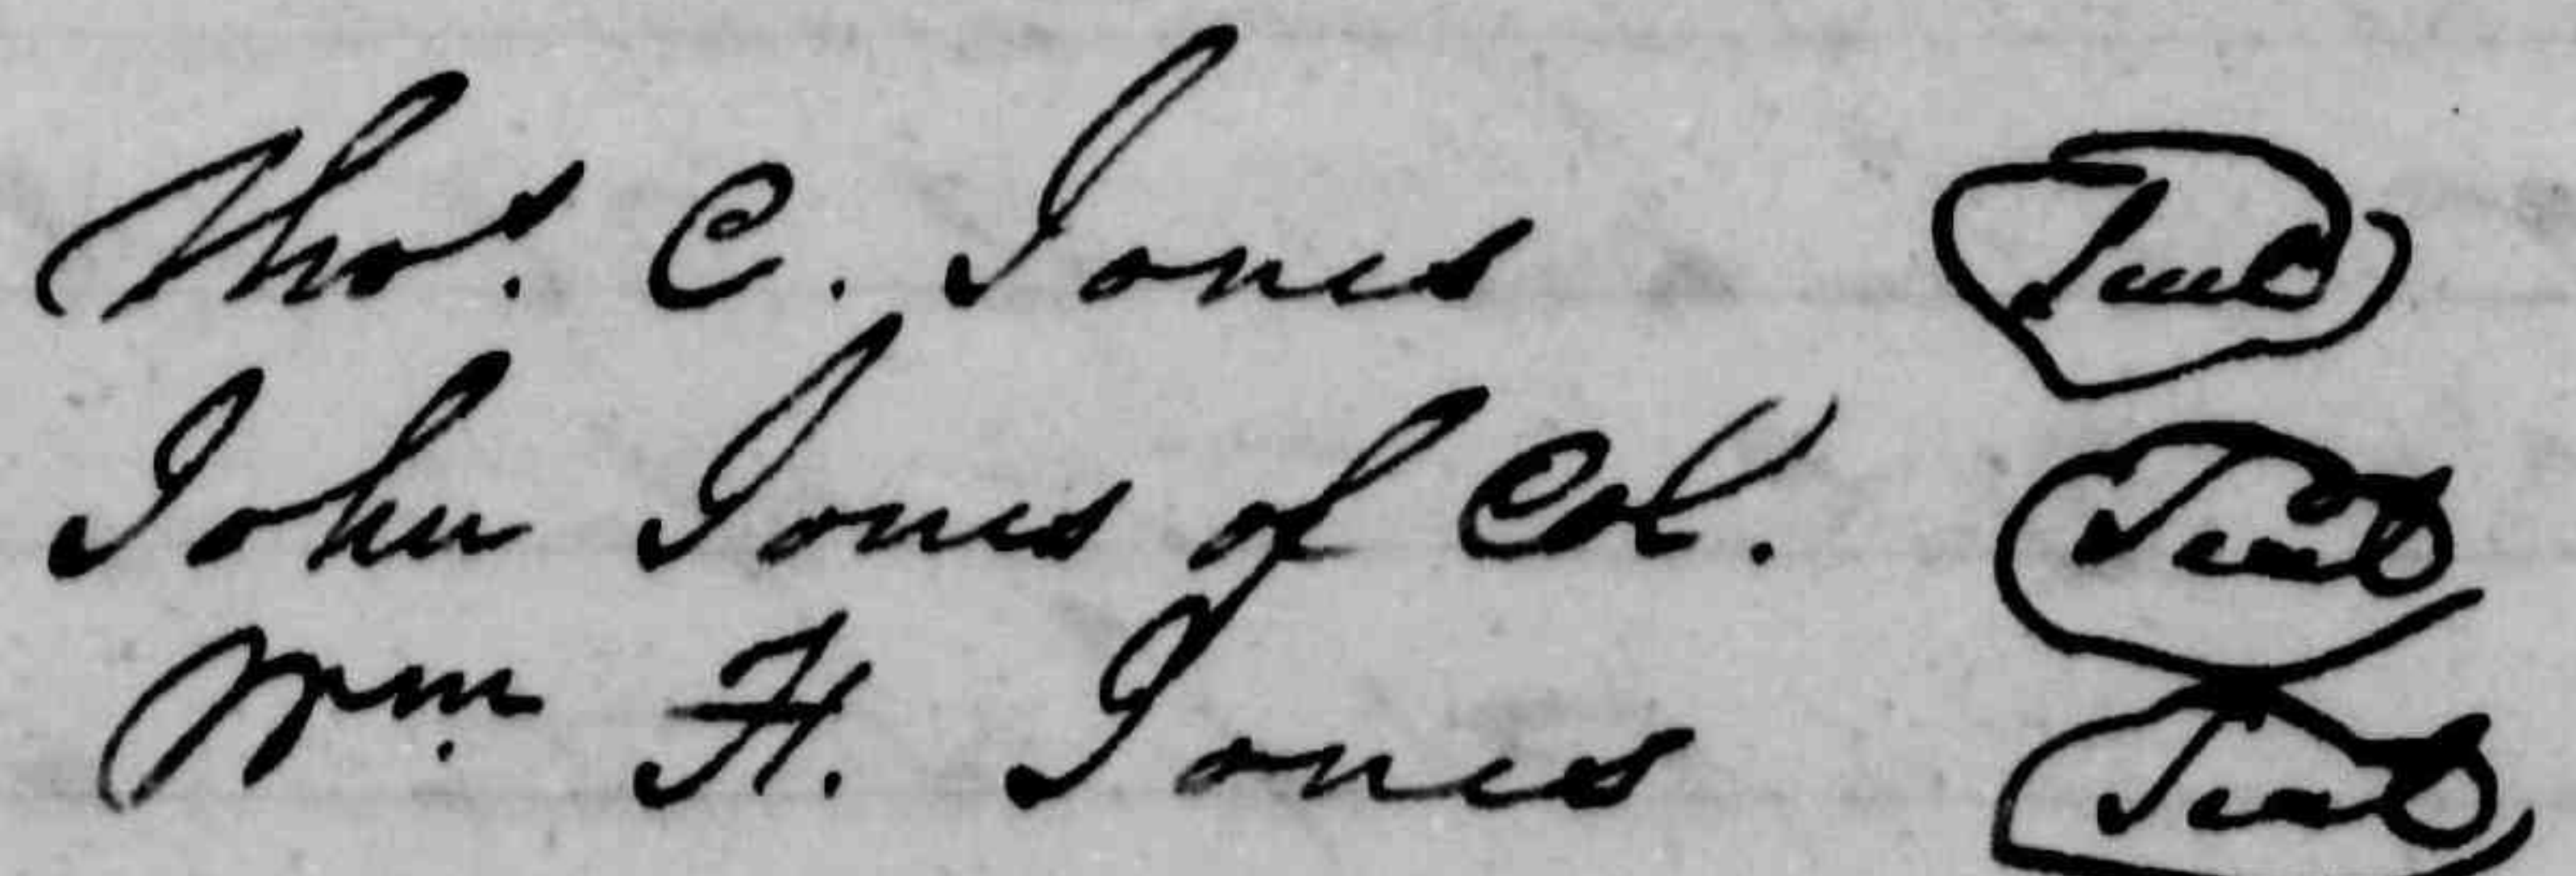 Thos. C. Jones Seal
John Jones of Col. Seal
Wm. H. Jones Seal